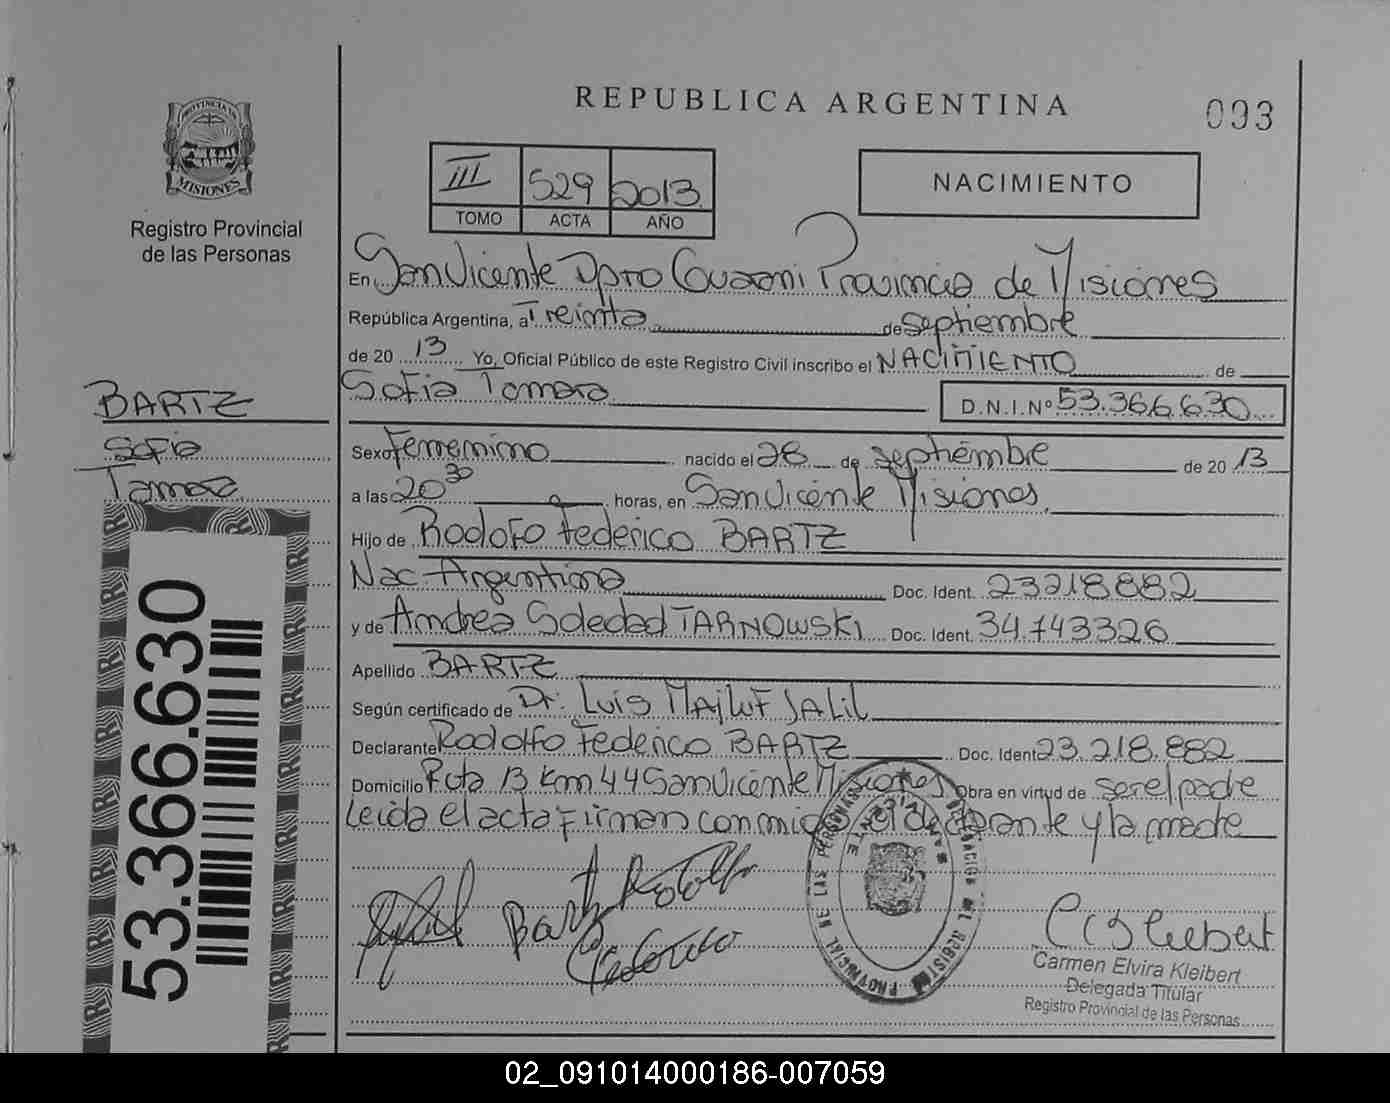 REPUBLICA ARGENTINA
093
PROVINCIA DE
MISIONES
Registro Provincial
de las Personas
III 529 2013
TOMO ACTA AÑO
NACIMIENTO
En San Vicente Dpto Guarani Provincia de Misiones
República Argentina, a Treinta de septiembre
de 20 13 Yo, Oficial Público de este Registro Civil inscribo el NACIMIENTO de
Sofia Tamara D.N.I.Nº 53.366.630
BARTZ
Sofia
Tamara
53.366.630
Sexo Femenino nacido el 28 de septiembre de 20 13
a las 20 30 horas, en San Vicente Misiones
Hijo de Rodofo Federico BARTZ
Nac. Argentina Doc. Ident. 23218882
y de Andrea Soledad TARNOWSKI Doc. Ident. 34.743326
Apellido BARTZ
Según certificado de Dr. Luis MAjluf JALIL
Declarante Rodolfo Federico BARTZ Doc. Ident 23.218.882
Domicilio Ruta 13 Km 44 San Vicente Misiones Obra en virtud de ser el padre
Leida el acta firman conmigo el declarante y la madre
Bartz Rodolfo
Federico
PROVINCIAL DE LAS PERSONAS
SAN VICENTE
Carmen Elvira Kleibert
Delegada Titular
Registro Provincial de las Personas
02_091014000186-007059